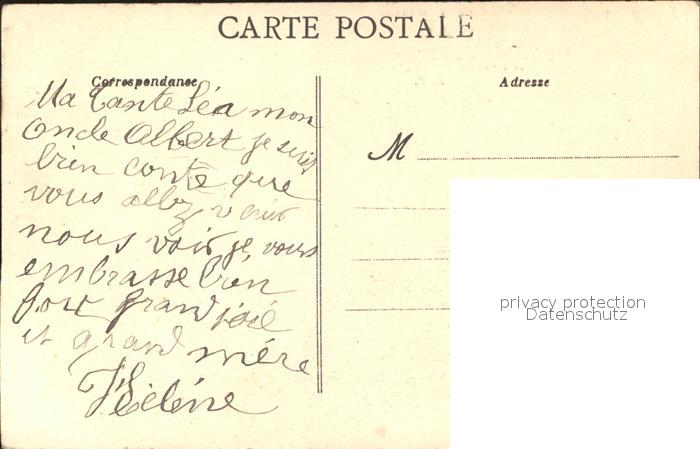 CARTE POSTALE
Correspondance
Ma Tante Léa mon
oncle Albert je suis
bien conte que
vous allez venir
nous voir je vous
embrasse bien
fort grand José
et grand mère
Hélène
Adresse
M
privacy protection
Datenschutz